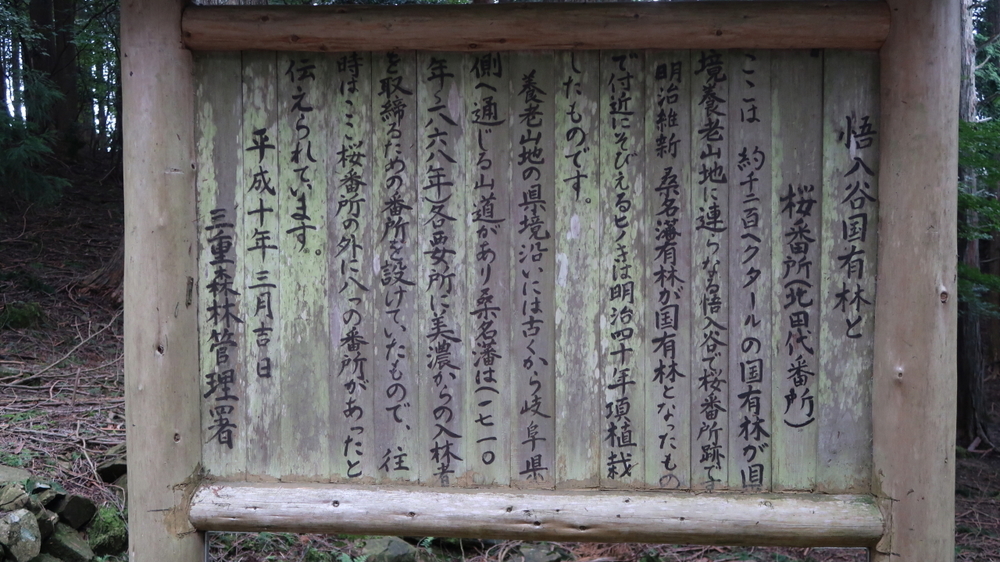 悟入谷国有林と
桜番所(北田代番所)
ここは 約千二百ヘクタールの国有林が県
境養老山地に連らなる悟入谷で桜番所跡です
明治維新 桑名藩有林が国有林となったもの
で付近にそびえるヒノキは明治四十年項植栽
したものです。
養老山地の県境沿いには古くから岐阜県
側へ通じる山道があり桑名藩は(一七一〇
年~一八六八年)各要所に美濃からの入林者
を取締るための番所を設けていたもので、往
時はここ桜番所の外に八つの番所があったと
伝えられています。
平成十年三月吉日
三重森林管理署